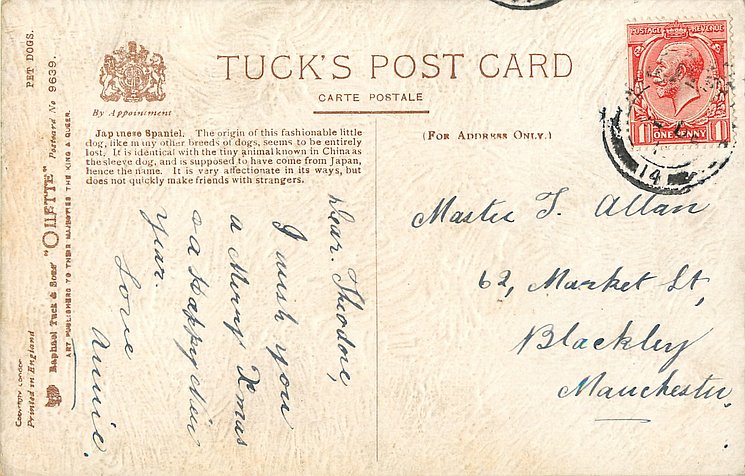 PET DOGS.
Raphael Tuck & Sons' "OILETTE" Postcard No 9639.
ART PUBLISHERS TO THEIR MAJESTIES THE KING & QUEEN.
Printed in England
TUCK'S POST CARD
CARTE POSTALE
By Appointment
(FOR ADDRESS ONLY.)
Japanese Spaniel. The origin of this fashionable little
dog, like many other breeds of dogs, seems to be entirely
lost. It is identical with the tiny animal known in China as
the sleeve dog, and is supposed to have come from Japan,
hence the name. It is very affectionate in its ways, but
does not quickly make friends with strangers.
Dear Theodore,
I wish you
a Merry Xmas
& a Happy New
Year.
Love
Annie.
Master T. Allan
62, Market St,
Blackley
Manchester.
POSTAGE REVENUE
1 ONE PENNY 1
14